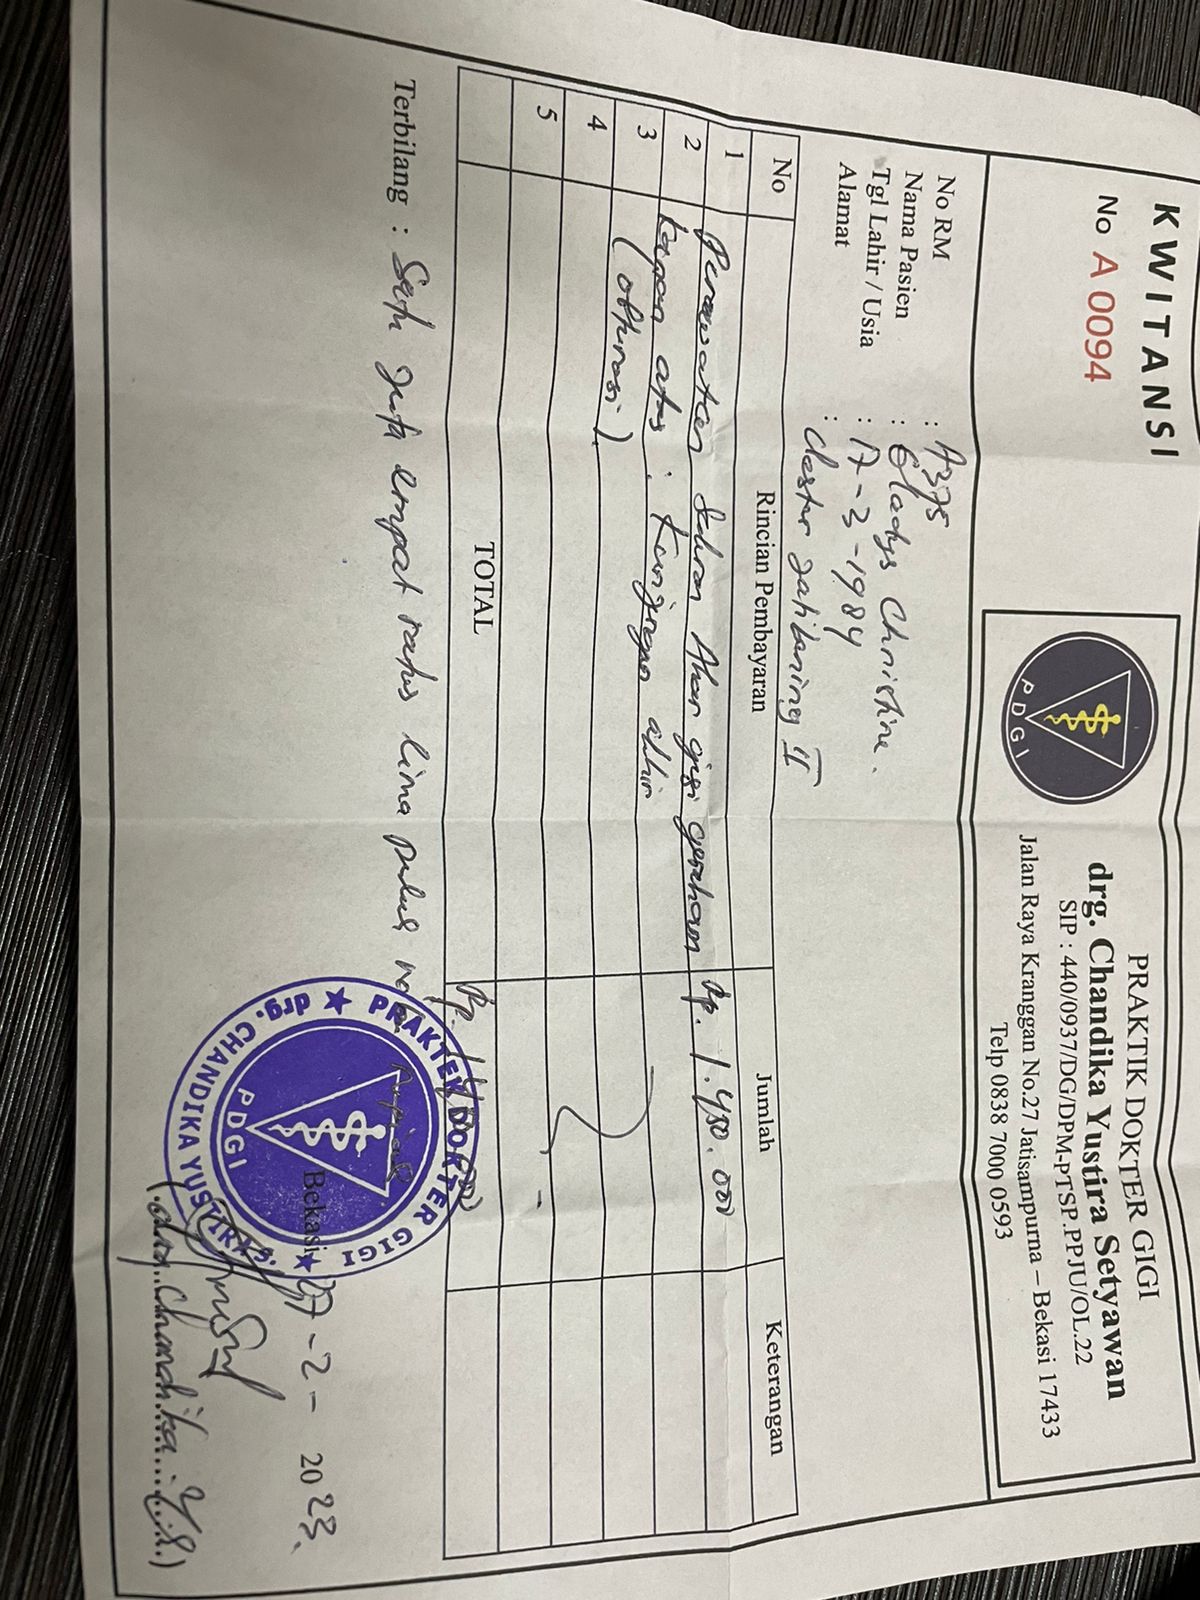 KWITANSI
No A 0094
PDGI
PRAKTIK DOKTER GIGI
drg. Chandika Yustira Setyawan
SIP : 440/0937/DG/DPM-PTSP.PPJU/OL.22
Jalan Raya Kranggan No.27 Jatisampurna – Bekasi 17433
Telp 0838 7000 0593
No RM : A375
Nama Pasien : Gladys Christine.
Tgl Lahir / Usia : 17-3-1984
Alamat : Claster Jatibening II
No Rincian Pembayaran Jumlah Keterangan
1 Perawatan Saluran Akar gigi geraham Rp. 1.450.000
2 kanan atas : kunjungan akhir
3 (obturasi)
4
5
TOTAL Rp.
Terbilang : Satu juta empat ratus lima puluh ribu rupiah
PRAKTEK DOKTER GIGI
drg. CHANDIKA YUSTIRA S.
PDGI
Bekasi 27-2-2023.
(drg. Chandika Y.S.)